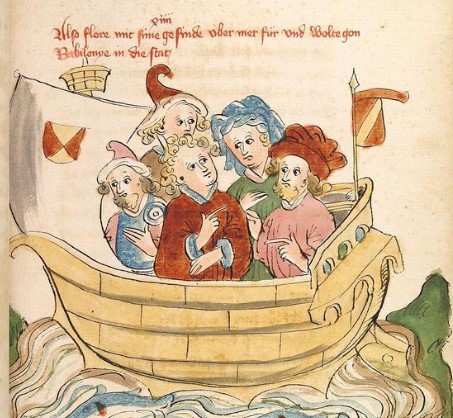 Also flore mit sime gesinde vber mer für vnd wolte gon
Babilonye in die stat